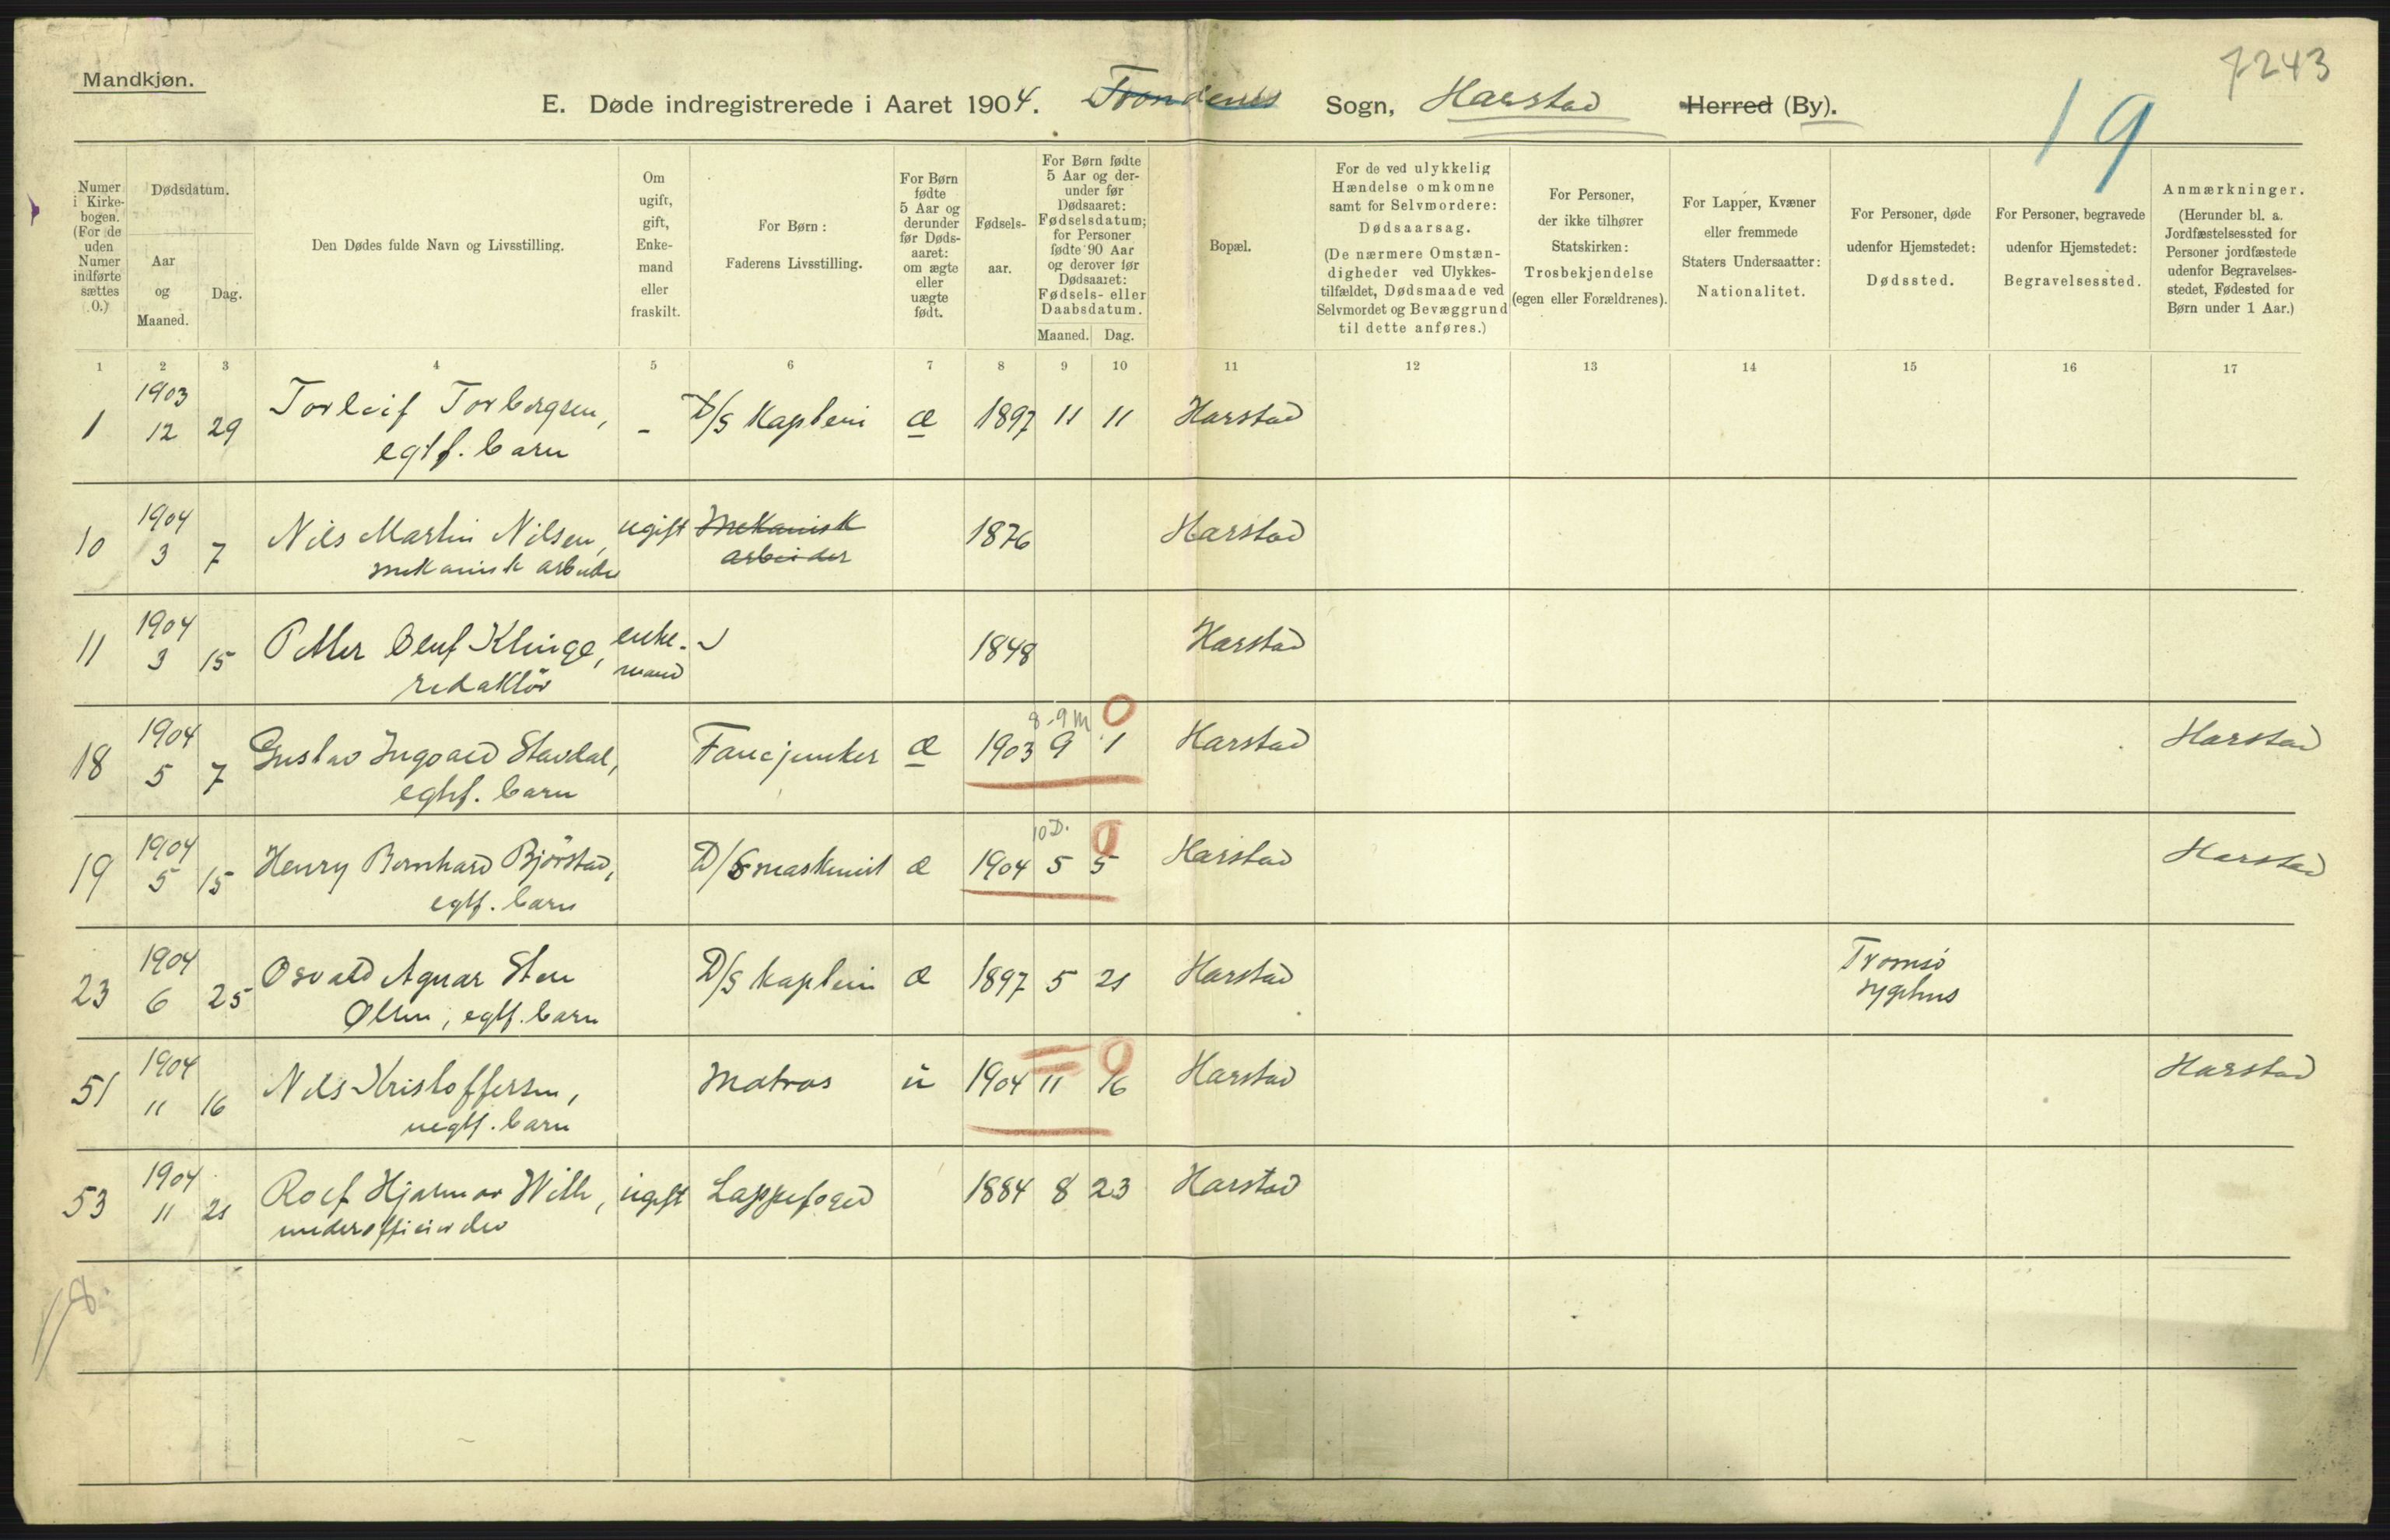 7243
Mandkjøn.
E. Døde indregistrerede i Aaret 1904. Trondenes Sogn, Harstad Herred (By).
19
Numer i Kirkebogen. (For de uden Numer indførte sættes 0.)
Dødsdatum.
Aar og Maaned.
Dag.
Den Dødes fulde Navn og Livsstilling.
Om ugift, gift, Enkemand eller fraskilt.
For Børn: Faderens Livsstilling.
For Børn fødte 5 Aar og derunder før Dødsaaret: om ægte eller uægte født.
Fødselsaar.
For Børn fødte 5 Aar og derunder før Dødsaaret: Fødselsdatum; for Personer fødte 90 Aar og derover før Dødsaaret: Fødsels- eller Daabsdatum.
Maaned. Dag.
Bopæl.
For de ved ulykkelig Hændelse omkomne samt for Selvmordere: Dødsaarsag. (De nærmere Omstændigheder ved Ulykkestilfældet, Dødsmaade ved Selvmordet og Bevæggrund til dette anføres.)
For Personer, der ikke tilhører Statskirken: Trosbekjendelse (egen eller Forældrenes).
For Lapper, Kvæner eller fremmede Staters Undersaatter: Nationalitet.
For Personer, døde udenfor Hjemstedet: Dødssted.
For Personer, begravede udenfor Hjemstedet: Begravelsessted.
Anmærkninger. (Herunder bl. a. Jordfæstelsessted for Personer jordfæstede udenfor Begravelsesstedet, Fødested for Børn under 1 Aar.)
1 2 3 4 5 6 7 8 9 10 11 12 13 14 15 16 17
1903
1 12 29 Torleif Torbergsen, - D/S Kaptein æ 1897 11 11 Harstad
egtf. barn
1904
10 3 7 Nils Martin Nilsen, ugift Mekanisk 1876 Harstad
mekanisk arbeider arbeider
1904
11 3 15 Petter Oluf Klinge, enke- 1848 Harstad
redaktör mand
1904 8-9 m 0
18 5 7 Gustav Ingvald Stavdal, Fanejunker æ 1903 9 1 Harstad Harstad
egtf. barn
1904 10 D. 0
19 5 15 Henry Bernhard Björstad, D/S maskinist æ 1904 5 5 Harstad Harstad
egtf. barn
1904
23 6 25 Osvald Agnar Sten D/S kaptein æ 1897 5 21 Harstad Tromsö
Olsen, egtf. barn sygehus
1904 0
51 11 16 Nils Kristoffersen, Matros u 1904 11 16 Harstad Harstad
uegtf. barn
1904
53 11 21 Rolf Hjalmar Wille, ugift Lappefoged 1884 8 23 Harstad
8